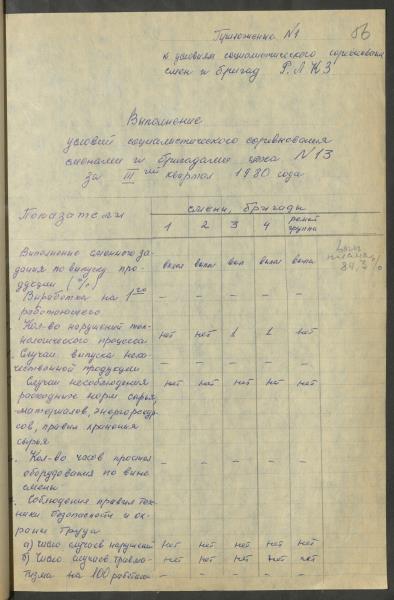 56
Приложение N1
к условиям социалистического соревнования
смен и бригад Р.Л.К.З.
Выполнение
условий социалистического соревнования
сменами и бригадами цеха N13
за III ий квартал 1980 года
Показатели
смены, бригады
1 2 3 4 ремонт группа
Выполнение сменного за-
дания по выпуску про-
дукции (%)
вып вып вып вып вып
84,3%
Выработка на 1го
работающего
– – – – –
Кол-во нарушений тех-
нологического процесса
нет нет 1 1 нет
Случаи выпуска нека-
чественной продукции
– – – – –
Случаи несоблюдения
расходных норм сырья,
материалов, энергоресур-
сов, правил хранения
сырья
нет нет нет нет нет
Кол-во часов простоя
оборудования по вине
смены
– – – – –
Соблюдение правил тех-
ники безопасности и ох-
раны труда
а) число случаев нарушений нет нет нет нет нет
б) число случаев травма- нет нет нет нет нет
тизма на 100 работающ – – – – –